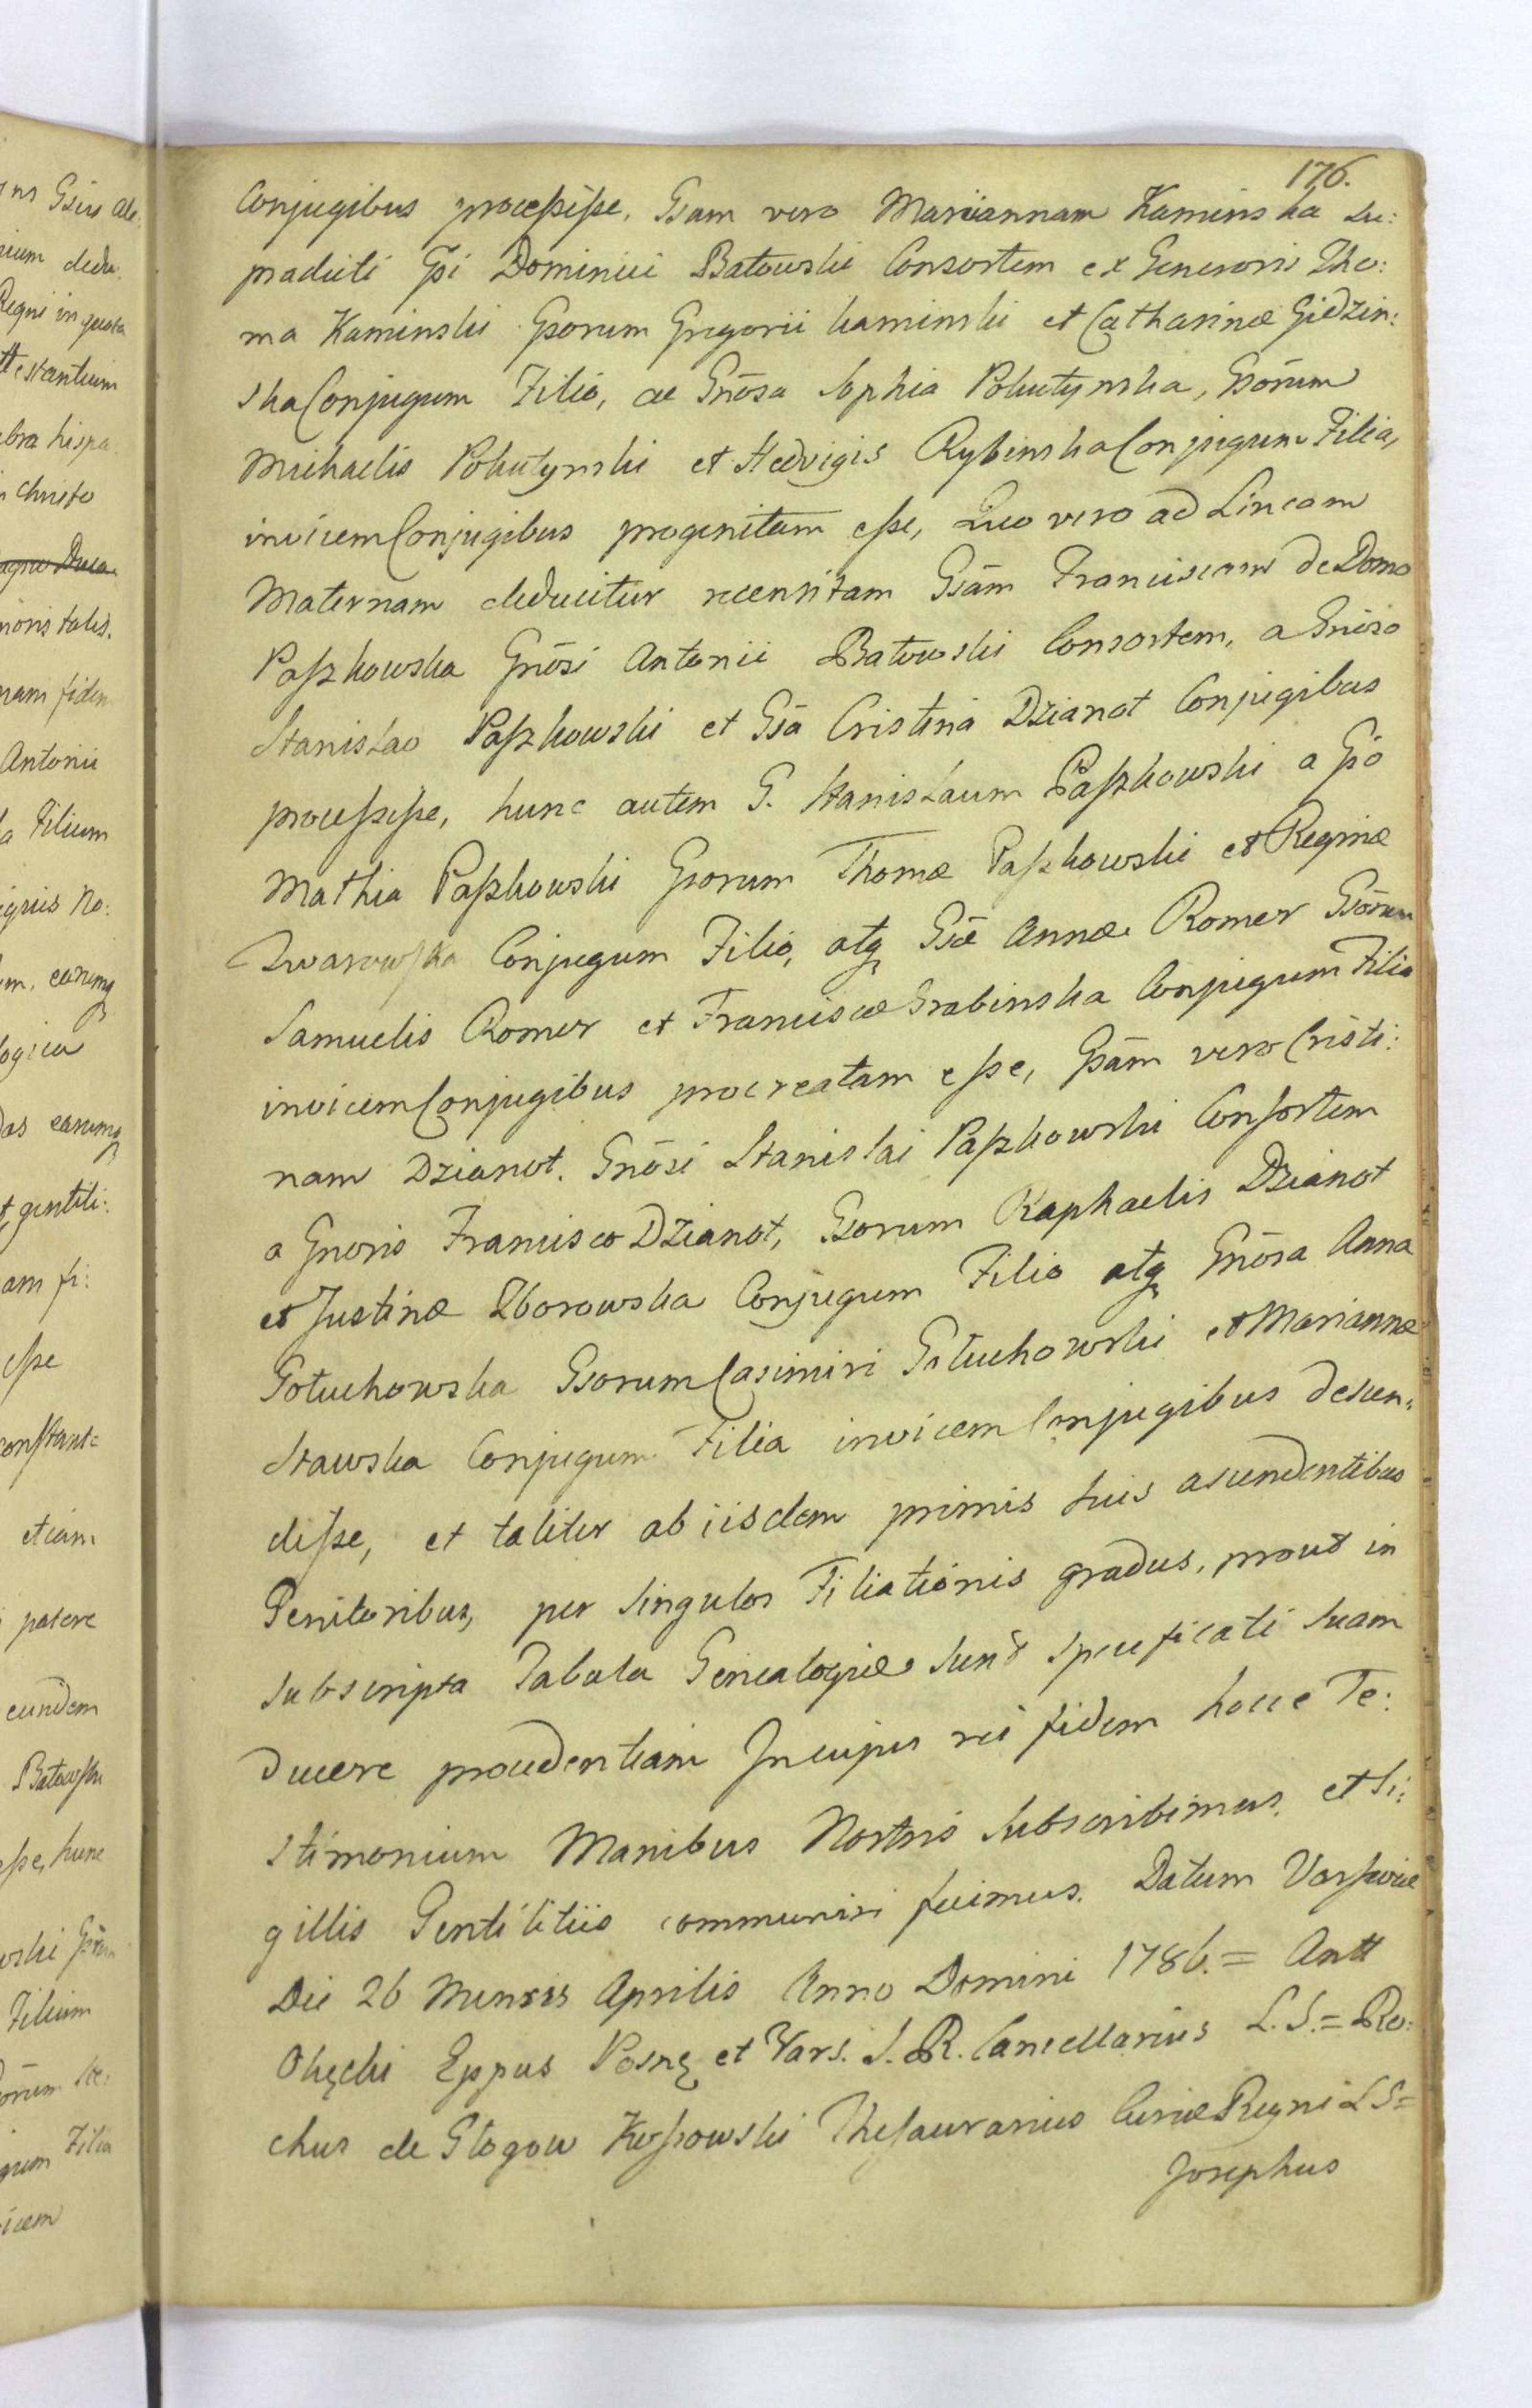 176.
Conjugibus processisse, Gsam vero Mariannam Kaminska su:
pradicti Gsi Dominici Batowski Consortem ex Generosis Tho:
ma Kaminski Gsorum Gregorii Kaminski et Catharinæ Gidzin:
ska Conjugum Filio, ac Gnōsa Sophia Pokutynska, Gsōrum
Michaelis Pokutynski et Hedvigis Rybinska Conjugum Filia,
invicem Conjugibus progenitam esse, Quo vero ad Lineam
Maternam deducitur recensitam Gsām Franciscam de Domo
Paszkowska Gnōsi Antonii Batowski Consortem, a Gnōso
Stanislao Paszkowski et Gsā Cristina Dzianot Conjugibus
processisse, hunc autem G. Stanislaum Paszkowski a Gsō
Mathia Paszkowski Gsorum Thomæ Paszkowski et Reginæ
Zwarowska Conjugum Filio, atq Gsæ Annæ Romer Gsōrum
Samuelis Romer et Franciscæ Grabinska Conjugum Filia
invicem Conjugibus procreatam esse, Gsām vero Cristi:
nam Dzianot. Gnōsi Stanislai Paszkowski Consortem
a Gneris Francisco Dzianot, Gsorum Raphaelis Dzianot
et Justinæ Zborowska Conjugum Filio atq Gnōsa Anna
Gołuchowska Gsorum Casimiri Gołuchowski et Mariannæ
Stawska Conjugum Filia invicem Conjugibus descen:
disse, et taliter ab iisdem primis suis ascendentibus
Genitoribus, per singulos Filiationis gradus, prout in
subscripta Tabula Genealogiæ sunt specificati suam
ducere procedentiam In cujus rei fidem hocce Te:
stimonium Manibus Nostris subscribimus, et Si:
gillis Gentilitiis communiri fecimus. Datum Varsaviæ
Die 26 Mensis Aprilis Anno Domini 1786. = Antt
Okęcki Eppus Posnę et Vars. S. R. Cancellarius L.S. = Ro:
chus de Głogow Kossowski Thesaurarius Curiæ Regni L S =
Josephus